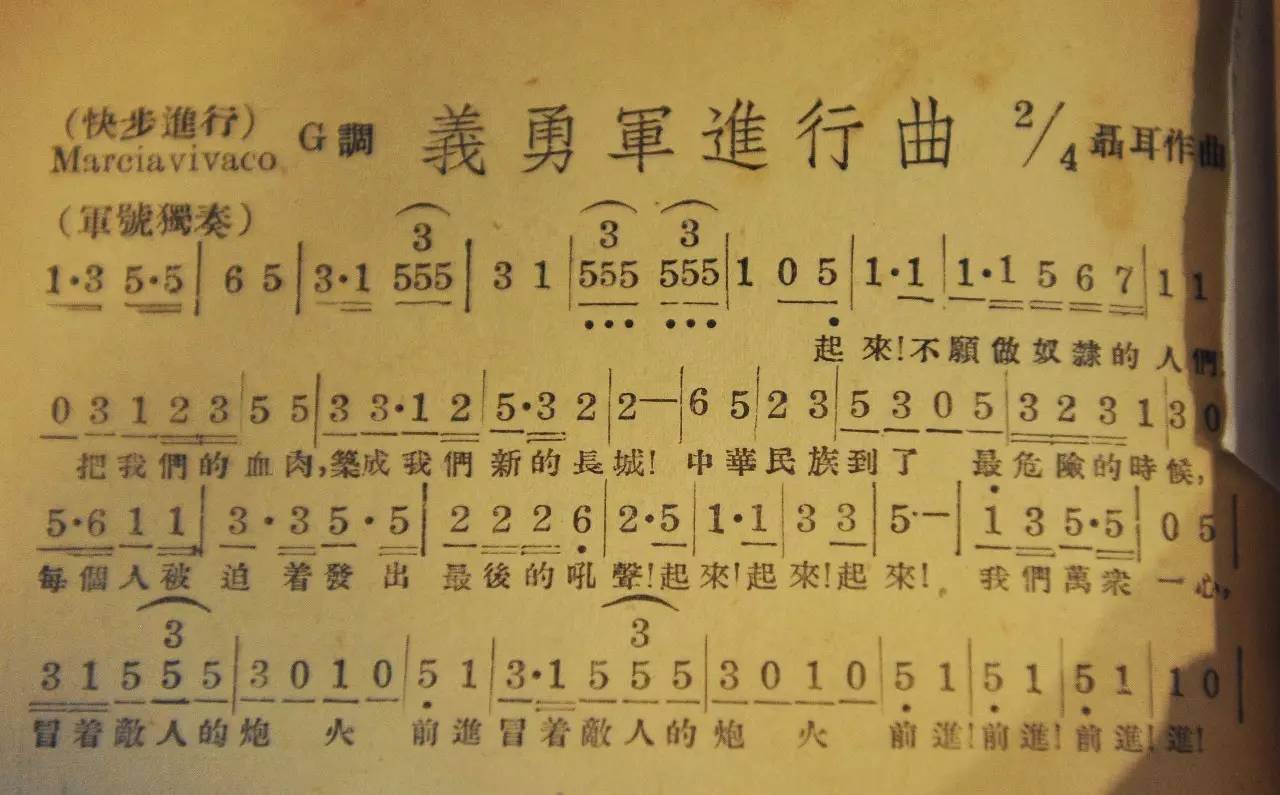 (快步進行) G調 義勇軍進行曲 2/4 聶耳作曲
Marciavivaco
(軍號獨奏)
3 3 3
1·3 5·5 | 6 5 | 3·1 555 | 3 1 | 555 555 | 1 0 5 | 1·1 | 1·1 5 6 7 | 1 1
起來!不願做奴隸的人們!
0 3 1 2 3 | 5 5 | 3 3·1 2 | 5·3 2 | 2— | 6 5 | 2 3 | 5 3 0 5 | 3 2 3 1 | 3 0
把我們的血肉,築成我們新的長城!中華民族到了 最危險的時候,
5·6 1 1 | 3·3 5·5 | 2 2 2 6 | 2·5 | 1·1 | 3 3 | 5·— | 1 3 5·5 | 0 5 |
每個人被迫着發出 最後的吼聲!起來!起來!起來! 我們萬衆一心,
3 3
3 1 5 5 5 | 3 0 1 0 | 5 1 | 3·1 5 5 5 | 3 0 1 0 | 5 1 | 5 1 | 5 1 | 1 0 |
冒着敵人的炮 火 前進冒着敵人的炮 火 前進!前進!前進!進!